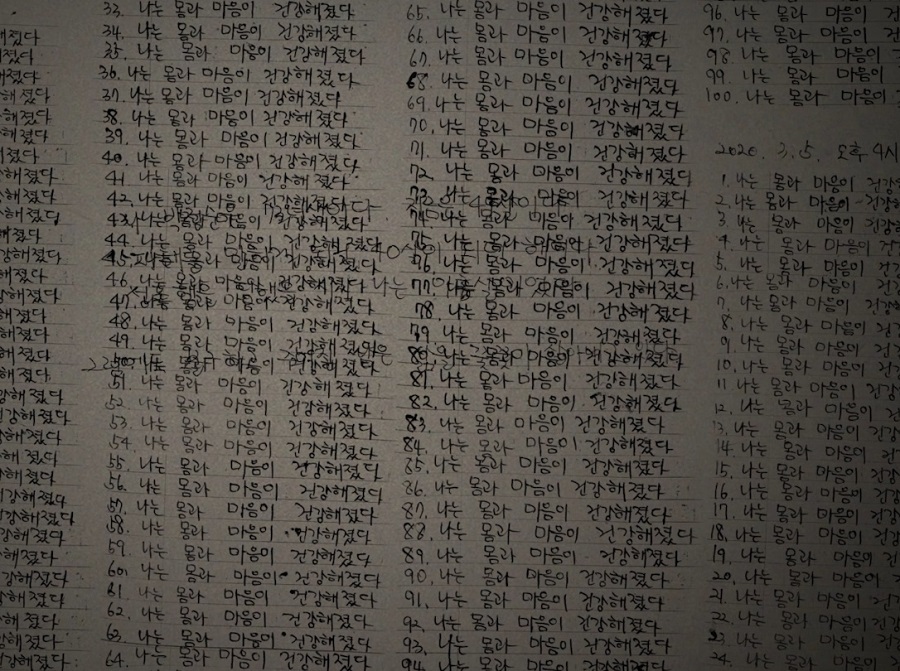 해졌다
해졌다
해졌다
해졌다
해졌다
해졌다
해졌다
해졌다
해졌다
해졌다
해졌다
해졌다
강해졌다
강해졌다
해졌다
해졌다
해졌다
해졌다
강해졌다
강해졌다
강해졌다
해졌다
해졌다
강해졌다
강해졌다
강해졌다
해졌다
강해졌다
강해졌다
강해졌다
강해졌다
33. 나는 몸과 마음이 건강해졌다
34. 나는 몸과 마음이 건강해졌다
35. 나는 몸과 마음이 건강해졌다
36. 나는 몸과 마음이 건강해졌다
37. 나는 몸과 마음이 건강해졌다
38. 나는 몸과 마음이 건강해졌다
39. 나는 몸과 마음이 건강해졌다
40. 나는 몸과 마음이 건강해졌다
41. 나는 몸과 마음이 건강해졌다
42. 나는 몸과 마음이 건강해졌다
43. 나는 몸과 마음이 건강해졌다
44. 나는 몸과 마음이 건강해졌다
45. 나는 몸과 마음이 건강해졌다
46. 나는 몸과 마음이 건강해졌다
47. 나는 몸과 마음이 건강해졌다
48. 나는 몸과 마음이 건강해졌다
49. 나는 몸과 마음이 건강해졌다
50. 나는 몸과 마음이 건강해졌다
51. 나는 몸과 마음이 건강해졌다
52. 나는 몸과 마음이 건강해졌다
53. 나는 몸과 마음이 건강해졌다
54. 나는 몸과 마음이 건강해졌다
55. 나는 몸과 마음이 건강해졌다
56. 나는 몸과 마음이 건강해졌다
57. 나는 몸과 마음이 건강해졌다
58. 나는 몸과 마음이 건강해졌다
59. 나는 몸과 마음이 건강해졌다
60. 나는 몸과 마음이 건강해졌다
61. 나는 몸과 마음이 건강해졌다
62. 나는 몸과 마음이 건강해졌다
63. 나는 몸과 마음이 건강해졌다
64. 나는 몸과 마음이 건강해졌다
65. 나는 몸과 마음이 건강해졌다
66. 나는 몸과 마음이 건강해졌다
67. 나는 몸과 마음이 건강해졌다
68. 나는 몸과 마음이 건강해졌다
69. 나는 몸과 마음이 건강해졌다
70. 나는 몸과 마음이 건강해졌다
71. 나는 몸과 마음이 건강해졌다
72. 나는 몸과 마음이 건강해졌다
73. 나는 몸과 마음이 건강해졌다
74. 나는 몸과 마음이 건강해졌다
75. 나는 몸과 마음이 건강해졌다
76. 나는 몸과 마음이 건강해졌다
77. 나는 몸과 마음이 건강해졌다
78. 나는 몸과 마음이 건강해졌다
79. 나는 몸과 마음이 건강해졌다
80. 나는 몸과 마음이 건강해졌다
81. 나는 몸과 마음이 건강해졌다
82. 나는 몸과 마음이 건강해졌다
83. 나는 몸과 마음이 건강해졌다
84. 나는 몸과 마음이 건강해졌다
85. 나는 몸과 마음이 건강해졌다
86. 나는 몸과 마음이 건강해졌다
87. 나는 몸과 마음이 건강해졌다
88. 나는 몸과 마음이 건강해졌다
89. 나는 몸과 마음이 건강해졌다
90. 나는 몸과 마음이 건강해졌다
91. 나는 몸과 마음이 건강해졌다
92. 나는 몸과 마음이 건강해졌다
93. 나는 몸과 마음이 건강해졌다
94. 나는 몸과 마음이 건강해졌다
96. 나는 몸과 마음이 건
97. 나는 몸과 마음이 건
98. 나는 몸과 마음이
99. 나는 몸과 마음이
100. 나는 몸과 마음이
2020. 3. 5. 오후 4시
1. 나는 몸과 마음이 건강
2. 나는 몸과 마음이 건강
3. 나는 몸과 마음이 건강
4. 나는 몸과 마음이 건
5. 나는 몸과 마음이 건강
6. 나는 몸과 마음이 건강
7. 나는 몸과 마음이 건강
8. 나는 몸과 마음이 건강
9. 나는 몸과 마음이 건
10. 나는 몸과 마음이 건
11. 나는 몸과 마음이 건강
12. 나는 몸과 마음이 건강
13. 나는 몸과 마음이 건강
14. 나는 몸과 마음이 건강
15. 나는 몸과 마음이 건강
16. 나는 몸과 마음이 건강
17. 나는 몸과 마음이 건강
18. 나는 몸과 마음이 건강
19. 나는 몸과 마음이 건
20. 나는 몸과 마음이 건
21. 나는 몸과 마음이 건강
22. 나는 몸과 마음이 건강
23. 나는 몸과 마음이 건강
24. 나는 몸과 마음이 건강